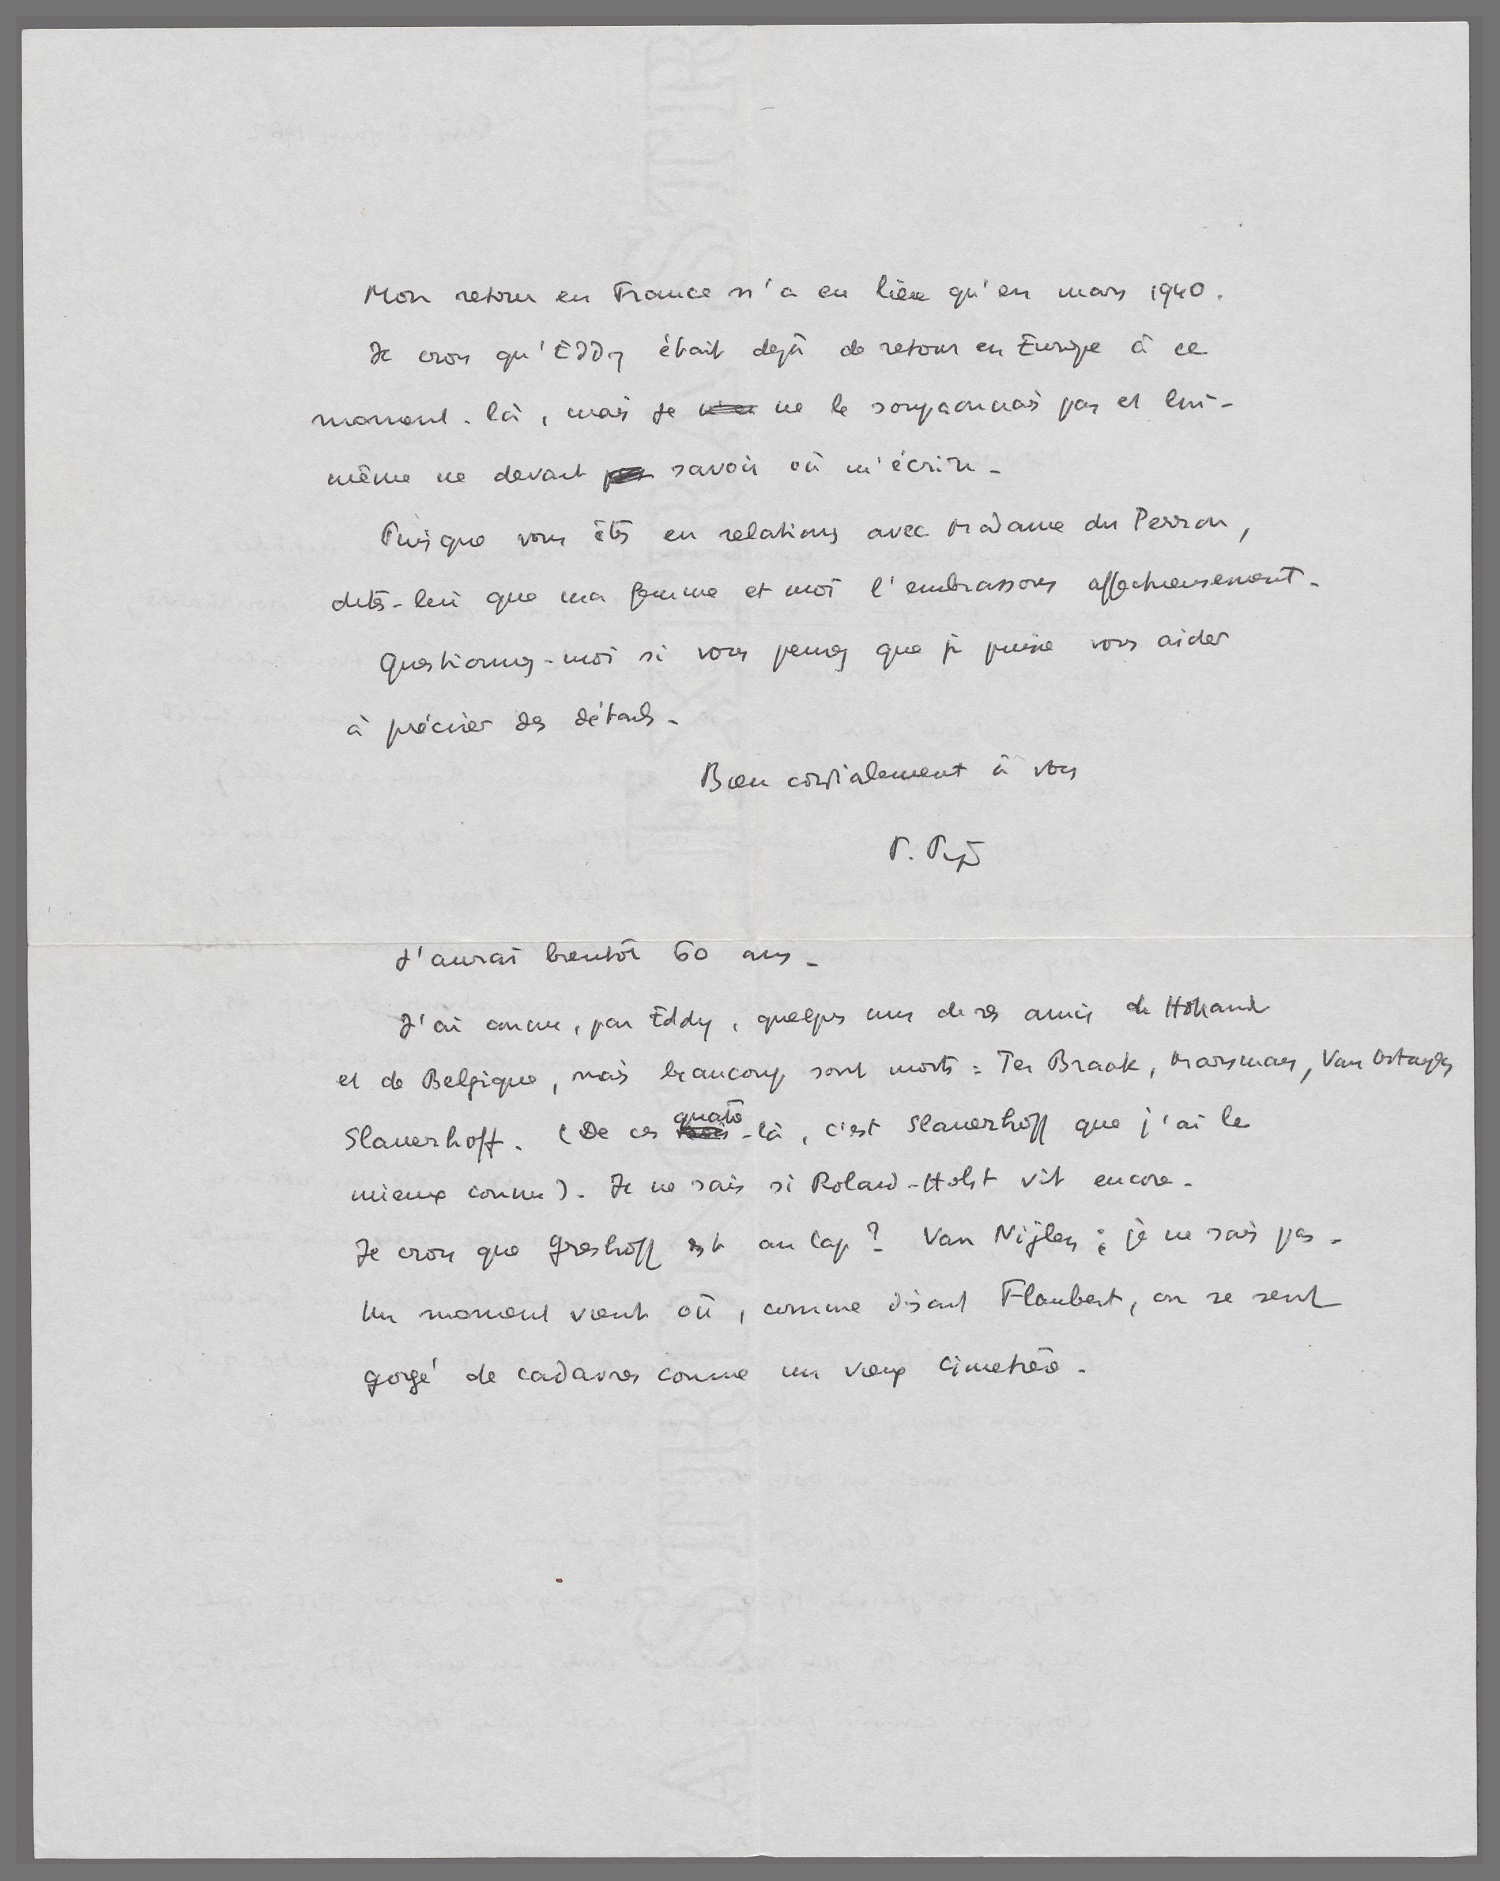 Mon retour en France n'a eu lieu qu'en mars 1940.
Je crois qu'Eddy était déjà de retour en Europe à ce
moment-là, mais je ne le soupçonnais pas et lui-
même ne devait savoir où m'écrire.
Puisque vous êtes en relations avec Madame du Perron,
dites-lui que ma femme et moi l'embrassons affectueusement.
Questionnez-moi si vous pensez que je puisse vous aider
à préciser des détails.
Bien cordialement à vous
P. Pia
J'aurai bientôt 60 ans.
J'ai connu, par Eddy, quelques uns de ses amis de Hollande
et de Belgique, mais beaucoup sont morts : Ter Braak, Marsman, Van Ostayen
Slauerhoff. (De ces quatre-là, c'est Slauerhoff que j'ai le
mieux connu). Je ne sais si Roland-Holst vit encore.
Je crois que Greshoff est au Cap ? Van Nijlen : je ne sais pas.
Un moment vient où, comme disait Flaubert, on se sent
gorgé de cadavres comme un vieux cimetière.